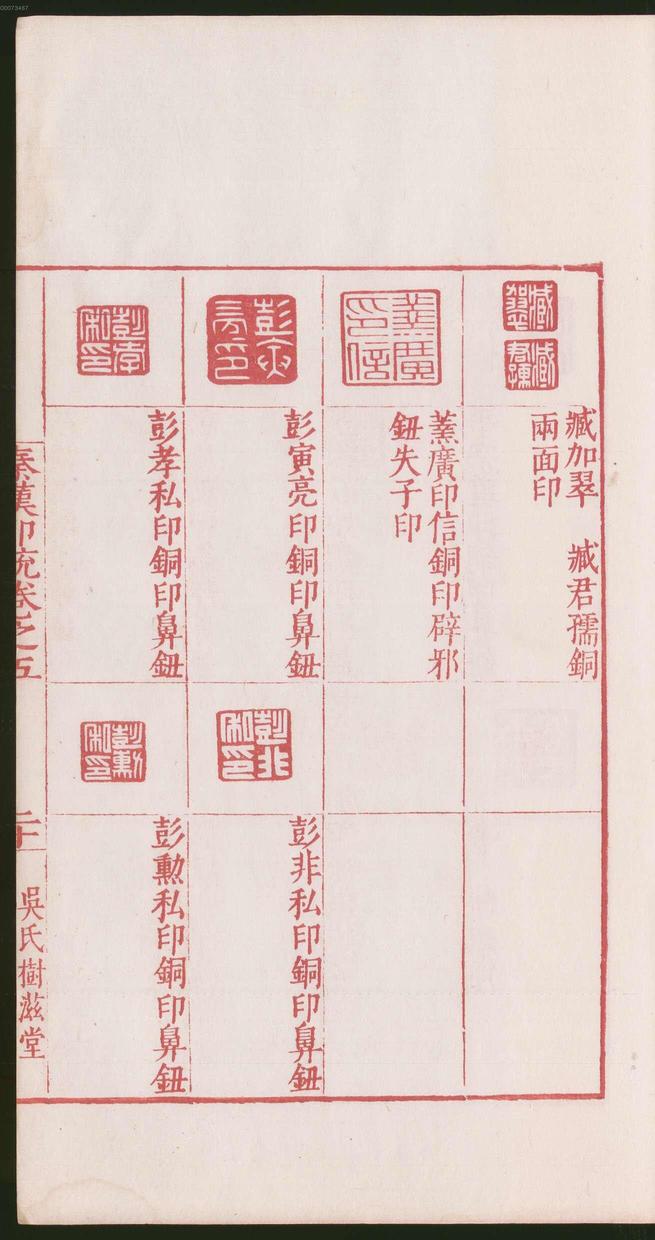 臧加翠　臧君孺銅
兩面印
藁廣印信銅印辟邪
鈕失子印
彭寅亮印銅印鼻鈕
彭孝私印銅印鼻鈕
彭非私印銅印鼻鈕
彭勲私印銅印鼻鈕
秦漢印統卷之五
二十
吳氏樹滋堂
00073467